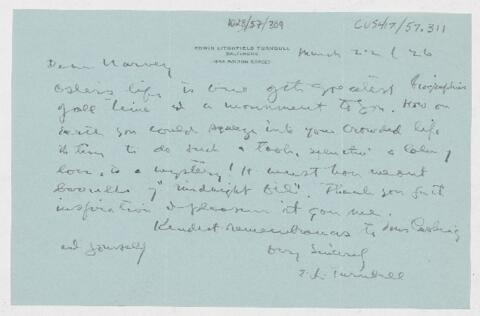 1023/57/309
CUS417/57.311
EDWIN LITCHFIELD TURNBULL
BALTIMORE
1623 BOLTON STREET
March 22 / 26
Dear Harvey
Osler's life is one of the greatest biographies
of all time & a monument to you. How on
earth you could squeeze into your crowded life
the time to do such a task, a labor of
love, is a mystery! It must have meant
barrells of "midnight oil". Thank you for the
inspiration & pleasure it gave me.
Kindest remembrances to Mrs Cushing
and yourself
Very Sincerely
E. L. Turnbull